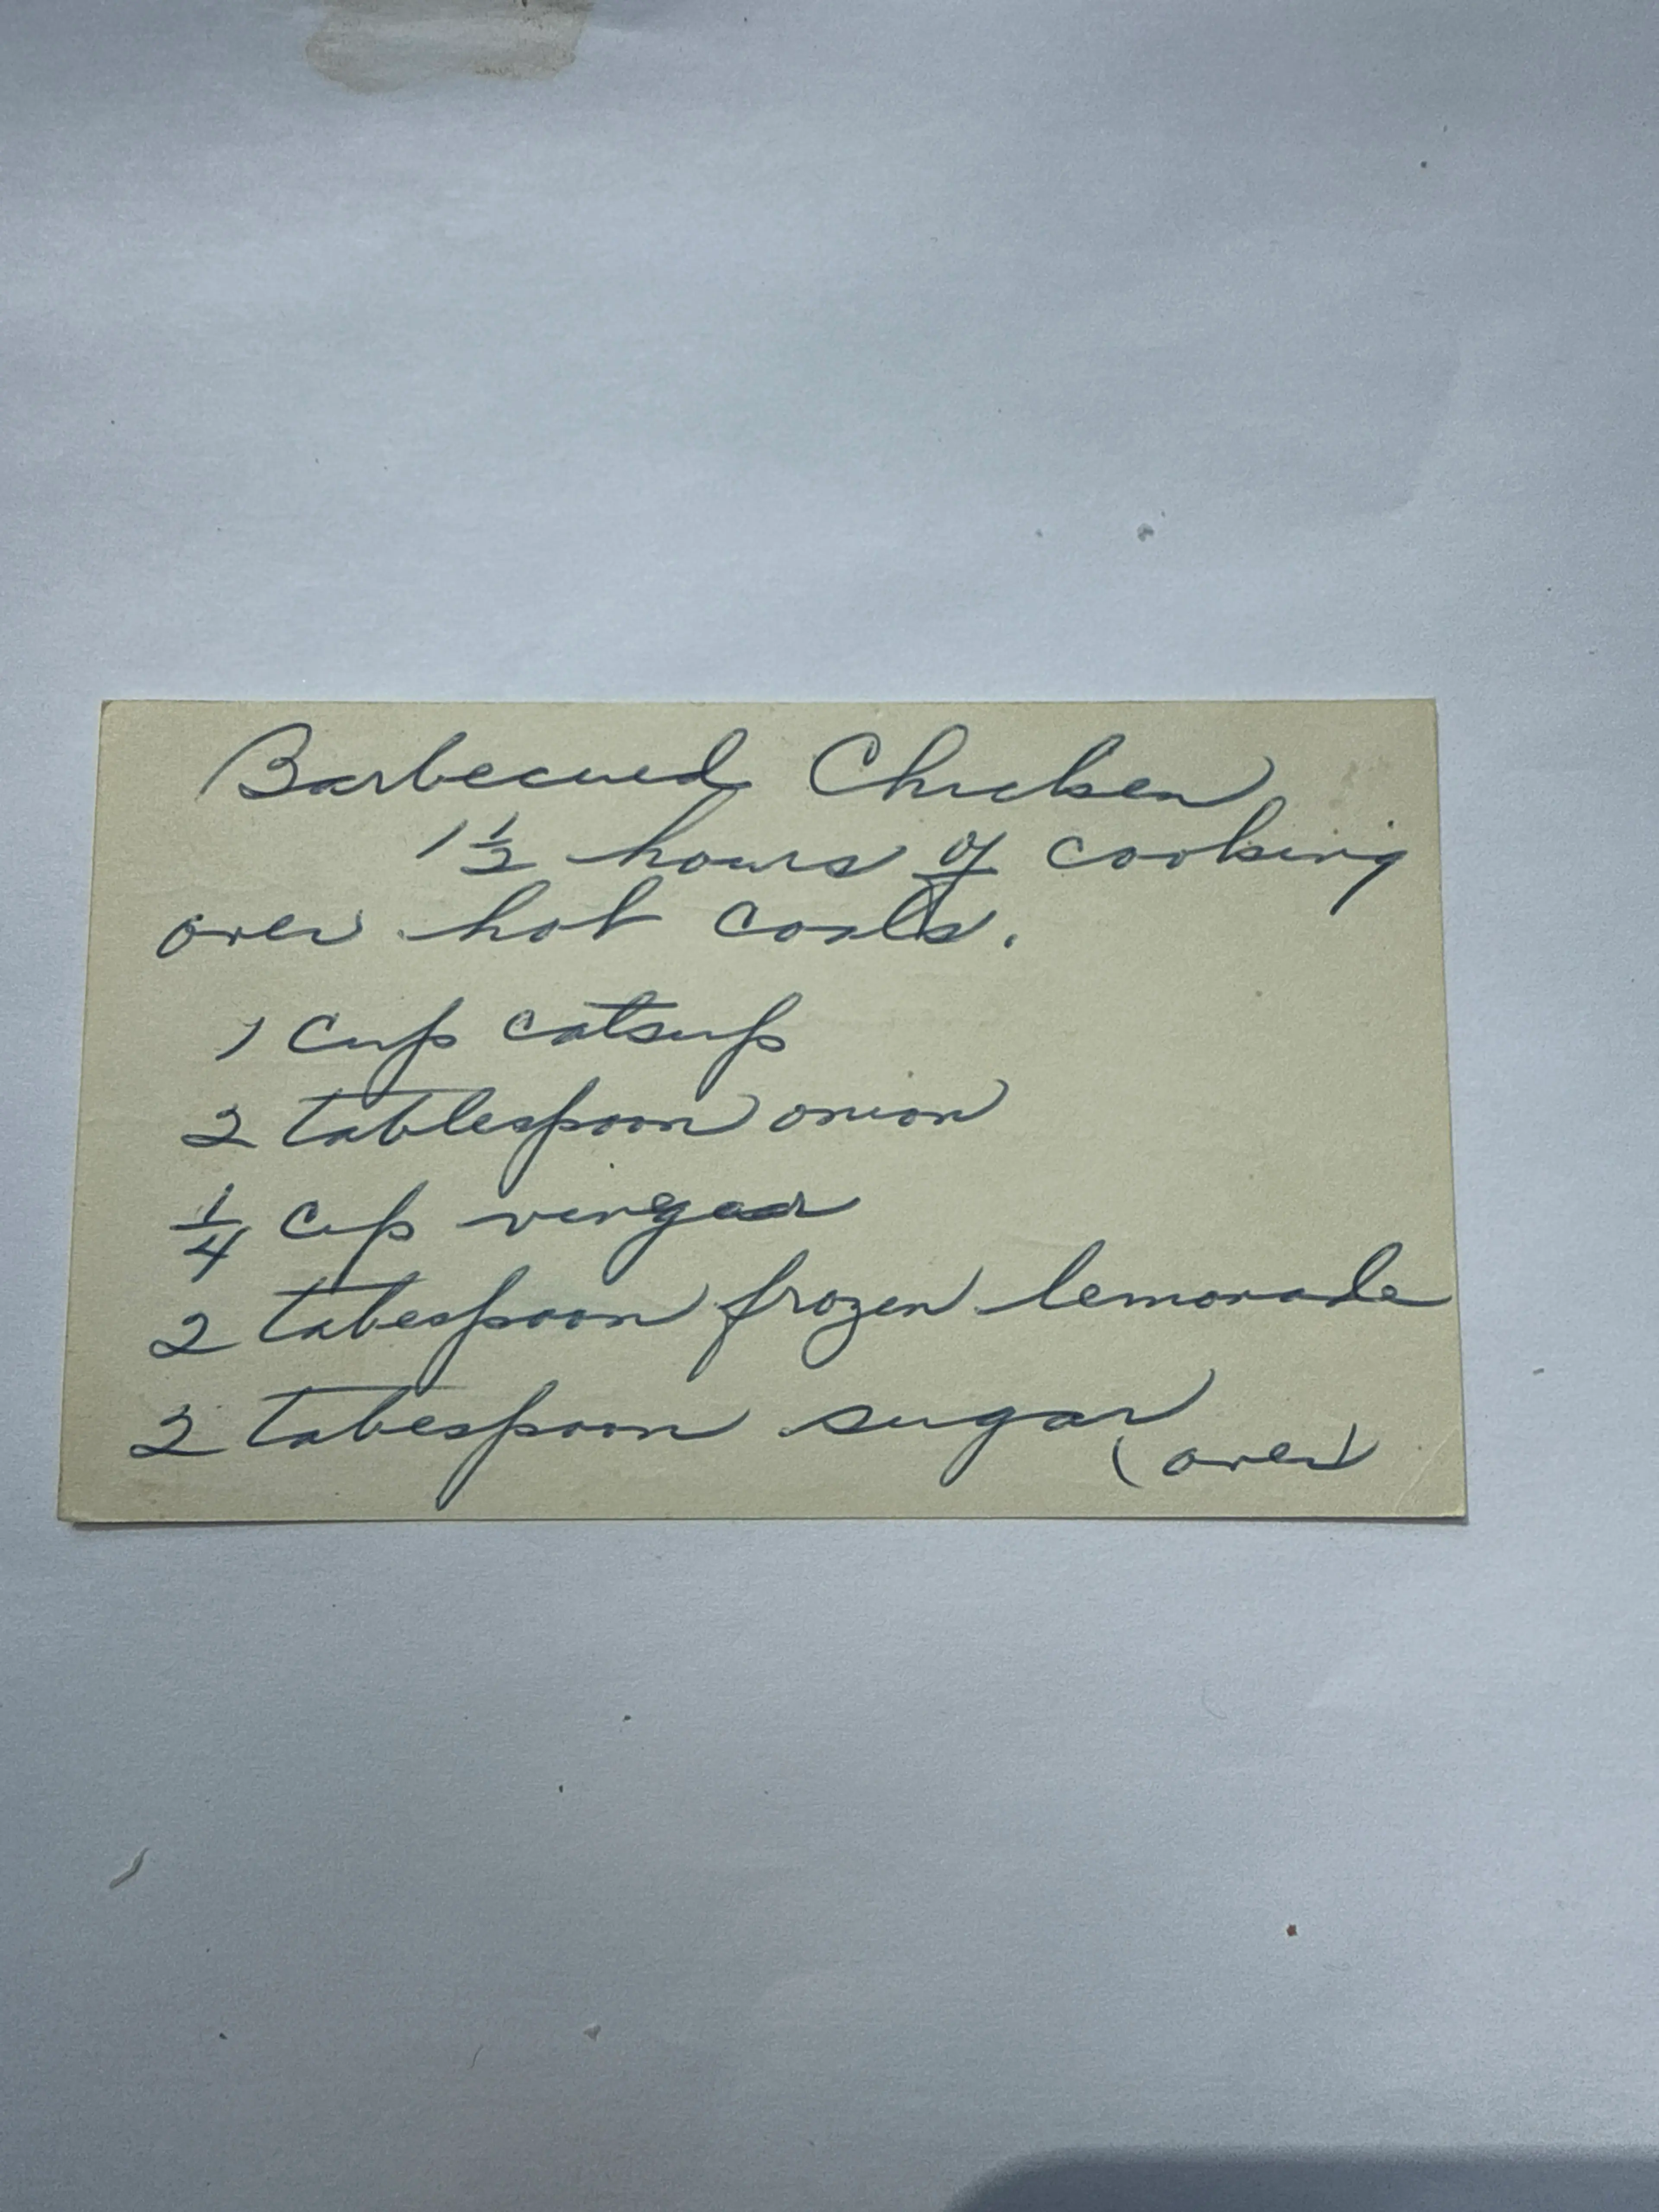 Barbecued Chicken
1 1/2 hours of cooking
over hot coals.
1 cup catsup
2 tablespoon onion
1/4 cup vingear
2 tabespoon frozen lemonade
2 tabespoon sugar
(over)